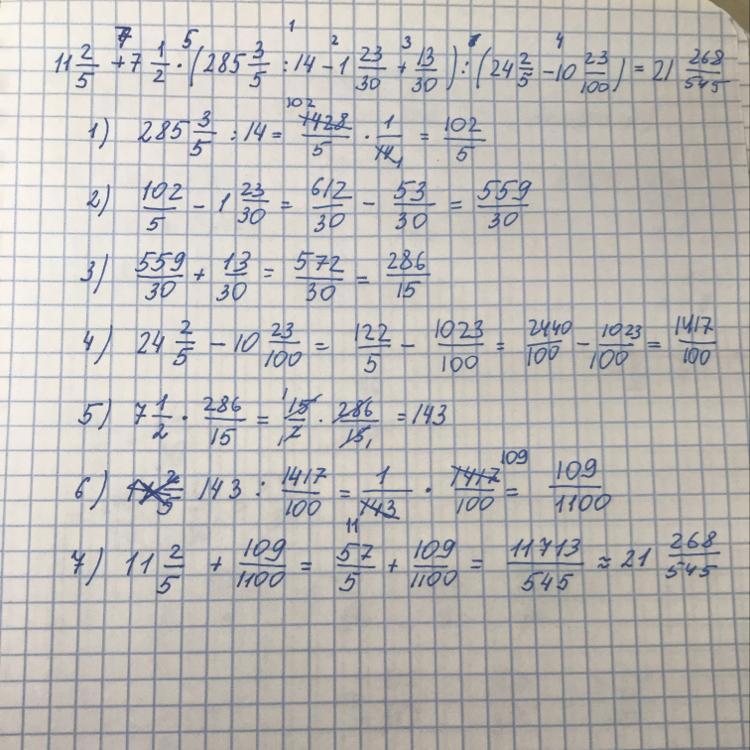 11 2/5 + 7 1/2 · (285 3/5 : 14 - 1 23/30 + 13/30) : (24 2/5 - 10 23/100) = 21 268/545
1) 285 3/5 : 14 = 1428/5 · 1/14 = 102/5
2) 102/5 - 1 23/30 = 612/30 - 53/30 = 559/30
3) 559/30 + 13/30 = 572/30 = 286/15
4) 24 2/5 - 10 23/100 = 122/5 - 1023/100 = 2440/100 - 1023/100 = 1417/100
5) 7 1/2 · 286/15 = 15/2 · 286/15 = 143
6) 143 : 1417/100 = 1/143 · 1417/100 = 109/1100
7) 11 2/5 + 109/1100 = 57/5 + 109/1100 = 11713/545 ≈ 21 268/545